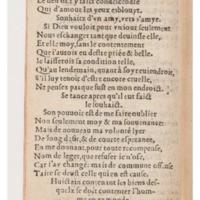 Qui d'amour les yeux esblouyt.
Souhaitz d'vn amy, vers s'amye.
Si Dieu vouloit pour vn iour seulement
Nous eschanger tant que deuinsse elle,
Et elle moy, sans le contentement
Que i'aurois en deste priée & belle.
le laisserois sa condition telle,
Qu'au lendemain, quant à soy reuiendroit,
S'il luy tenoit d'estre encore cruelle,
Ne penses pas que fust en mon endroict.
Se tance apres qu'il eut faict
le souhaict.
Son pouuoir est de me faire oublier
Non seulement moy & ma souuenance
Mais de nouueau ma volonté lyer
De long desir, & de courte esperance,
En me donnant, pour toute recompense,
Nom de leger, que refuser n'ose,
Car l'ay change: mais de commune offense
Taire se deust celle qui en est cause.
Huictain contenant les biens des-
quelz se doit contenter l'hom-